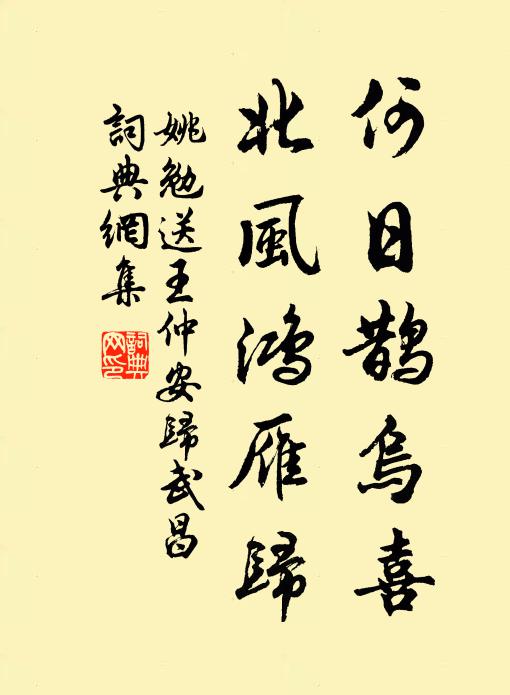 何日鵲烏喜
北風鴻雁歸
姚勉送王仲安歸武昌
詞典網集
詞典
网印